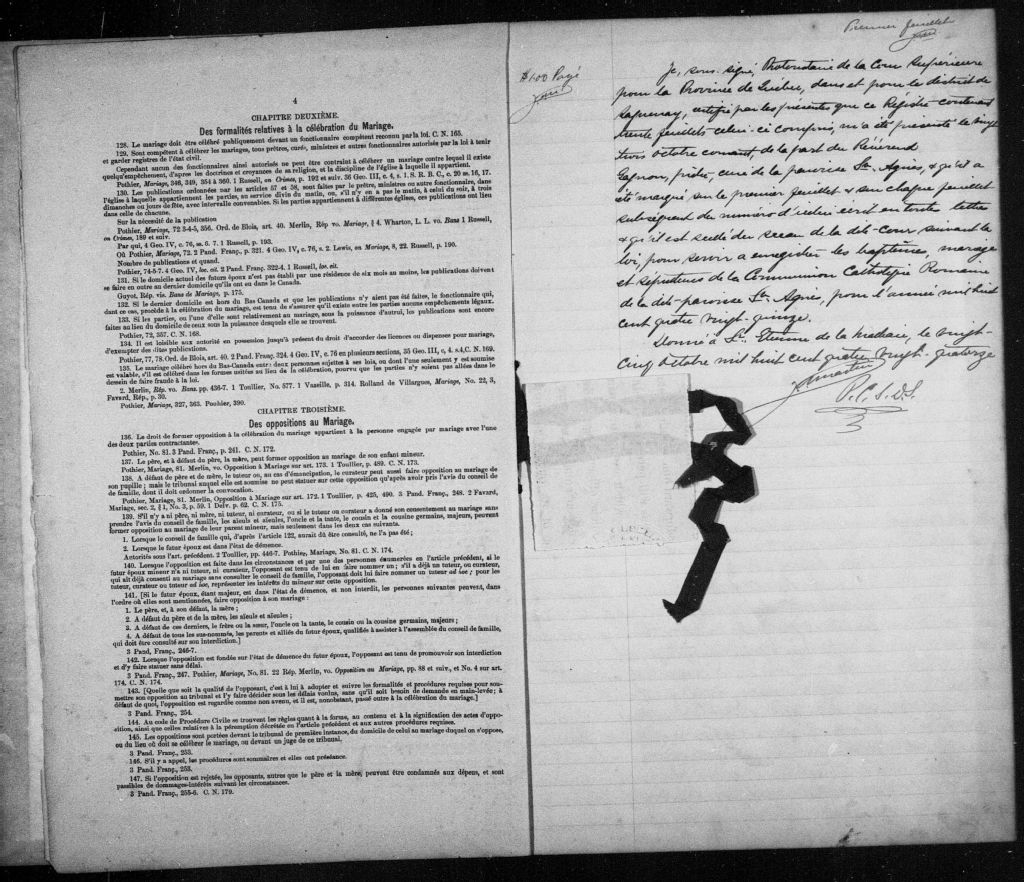 4
CHAPITRE DEUXIÈME.
Des formalités relatives à la célébration du Mariage.
128. Le mariage doit être célébré publiquement devant un fonctionnaire compétent reconnu par la loi. C. N. 165.
129. Sont compétent à célébrer les mariages, tous prêtres, curés, ministres et autres fonctionnaires autorisés par la loi à tenir
et garder registres de l'état civil.
Cependant aucun des fonctionnaires ainsi autorisés ne peut être contraint à célébrer un mariage contre lequel il existe
quelqu'empêchement, d'après les doctrines et croyances de sa religion, et la discipline de l'église à laquelle il appartient.
Pothier, Mariage, 346, 349, 354 à 360. 1 Russell, on Crimes, p. 192 et suiv. 36 Geo. III, c. 4, s. 1. S. R. B. C., c. 20 ss. 16, 17.
130. Les publications ordonnées par les articles 57 et 58, sont faites par le prêtre, ministre ou autre fonctionnaire, dans
l'église à laquelle appartiennent les parties, au service divin du matin, ou, s'il n'y en a pas le matin, à celui du soir, à trois
dimanches ou jours de fête, avec intervalle convenables. Si les parties appartiennent à différentes églises, ces publications ont lieu
dans celle de chacune.
Sur la nécessité de la publication
Pothier, Mariage, 72 3-4-5, 356. Ord. de Blois, art. 40. Merlin, Rép vo. Mariage, § 4. Wharton, L. L. vo. Bans 1 Russell,
on Crimes, 189 et suiv.
Par qui, 4 Geo. IV, c. 76, ss. 6. 7. 1 Russell, p. 193.
Où Pothier, Mariage, 72. 2 Pand. Franç., p. 321. 4 Geo. IV, c. 76, s. 2. Lewis, on Mariage, 8, 22. Russell, p. 190.
Nombre de publications et quand.
Pothier, 74-5-7. 4 Geo. IV, loc. cit. 2 Pand. Franç. 322-4. 1 Russell, loc. cit.
131. Si le domicile actuel des futurs époux n'est pas établi par une résidence de six mois au moins, les publications doivent
se faire en outre au dernier domicile qu'ils ont eu dans le Canada.
Guyot, Rép. vis. Bans de Mariage, p. 175.
132. Si leur dernier domicile est hors du Bas Canada et que les publications n'y aient pas été faites, le fonctionnaire qui,
dans ce cas, procède à la célébration du mariage, est tenu de s'assurer qu'il existe entre les parties aucuns empêchements légaux.
133. Si les parties, ou l'une d'elle sont relativement au mariage, sous la puissance d'autrui, les publications sont encore
faites au lieu du domicile de ceux sous la puissance desquels elle se trouvent.
Pothier, 72, 357. C. N. 168.
134. Il est loisible aux autorité en possession jusqu'à présent du droit d'accorder des licences ou dispenses pour mariage,
d'exempter des dites publications.
Pothier, 77, 78. Ord. de Blois, art. 40. 2 Pand. Franç. 324. 4 Geo. IV, c. 76 en plusieurs sections, 35 Geo. III, c. 4. s.4, C. N. 169.
135. Le mariage célébré hors du Bas-Canada entre deux personnes sujettes à ses lois, ou dont l'une seulement y est soumise
est valable, s'il est célébré dans les formes usitées au lieu de la célébration, pourvu que les parties n'y soient pas allées dans le
dessein de faire fraude à la loi.
2. Merlin, Rép. vo. Bans. pp. 436-7. 1 Toullier, No. 577. 1 Vazeille, p. 314. Rolland de Villargues, Mariage, No. 22, 3,
Favard, Rép., p. 30.
Pothier, Mariage, 327, 363. Pochier, 390.
CHAPITRE TROISIÈME.
Des oppositions au Mariage.
136. Le droit de former opposition à la célébration du mariage appartient à la personne engagée par mariage avec l'une
des deux parties contractantes.
Pothier, No. 81. 3 Pand. Franç., p. 241. C. N. 172.
137. Le père, et à défaut du père, la mère, peut former opposition au mariage de son enfant mineur.
Pothier, Mariage, 81. Merlin, vo. Opposition à Mariage sur art. 173. 1 Toullier, p. 489. C. N. 173.
138. A défaut de père et de mère, le tuteur ou, au cas d'émancipation, le curateur peut aussi faire opposition au mariage de
son pupille; mais le tribunal auquel elle est soumise ne peut statuer sur cette opposition qu'après avoir pris l'avis du conseil de
de famille, dont il doit ordonner la convocation.
Pothier, Mariage, 81. Merlin, Opposition à Mariage sur art. 172. 1 Toullier, p. 425, 490. 3 Pand. Franç., 248. 2 Favard,
Mariage, sec. 2, § 1, No. 3, p. 59. 1 Delv. p. 62. C. N. 175.
139. S'il n'y a ni père, ni mère, ni tuteur, ni curateur, ou si le tuteur ou curateur a donné son consentement au mariage sans
prendre l'avis du conseil de famille, les aïeuls et aïeules, l'oncle et la tante, le cousin et la cousine germains, majeurs, peuvent
former opposition au mariage de leur parent mineur, mais seulement dans les deux cas suivants.
1. Lorsque le conseil de famille qui, d'après l'article 122, aurait dû être consulté, ne l'a pas été;
2. Lorsque le futur époux est dans l'état de démence.
Autorités sous l'art. précédent. 2 Toullier, pp. 446-7. Pothier, Mariage, No. 81. C. N. 174.
140. Lorsque l'opposition est faite dans les circonstances et par une des personnes énumérées en l'article précédent, si le
futur époux mineur n'a ni tuteur, ni curateur, l'opposant est tenu de lui en faire nommer un; s'il a déjà un tuteur, ou curateur,
qui ait déjà consenti au mariage sans consulter le conseil de famille, l'opposant doit lui faire nommer un tuteur ad hoc; pour les
tuteur, curateur ou tuteur ad hoc, représenter les intérêts du mineur sur cette opposition.
141. [Si le futur époux, étant majeur, est dans l'état de démence, et non interdit, les personnes suivantes peuvent, dans
l'ordre où elles sont mentionnées, faire opposition à son mariage:
1. Le père, et, à son défaut, la mère;
2. A défaut du père et de la mère, les aïeuls et aïeules;
3. A défaut de ces derniers, le frère ou la sœur, l'oncle ou la tante, le cousin ou la cousine germains, majeurs;
4. A défaut de tous les sus-nommés, les parents et alliés du futur époux, qualifiés à assister à l'assemblée du conseil de famille,
qui doit être consulté sur son interdiction.]
3 Pand, Franç., 246-7.
142. Lorsque l'opposition est fondée sur l'état de démence du futur époux, l'opposant est tenu de promouvoir son interdiction
et d'y faire statuer sans délai.
3 Pand. Franç., 247. Pothier, Mariage, No. 81. 22 Rép. Merlin, vo. Opposition au Mariage, pp. 88 et suiv., et No. 4 sur art.
174. C. N. 174.
143. [Quelque que soit la qualité de l'opposant, c'est à lui à adopter et suivre les formalités et procédures requises pour sou-
mettre son opposition au tribunal et l'y faire décider sous les délais voulus, sans qu'il soit besoin de demande en main-levée; à
défaut de quoi, l'opposition est regardée comme non avenu, et il est, nonobstant, passé outre à la célébration du mariage.]
3 Pand. Franç., 254.
144. Au code de Procédure Civile se trouvent les règles quant à la forme, au contenu et à la signification des actes d'oppo-
sition, ainsi que celles relatives à la péremption décrétée en l'article précédent et aux autres procédures requises.
145. Les oppositions sont portées devant le tribunal de première instance, du domicile de celui au mariage duquel on s'oppose,
ou du lieu où doit se célébrer le mariage, ou devant un juge de ce tribunal.
3 Pand. Franç., 253.
146. S'il y a appel, les procédures sont sommaires et elles ont préséance.
3 Pand. Franç., 253.
147. Si l'opposition est rejetée, les opposants, autres que le père et la mère, peuvent être condamnés aux dépens, et sont
passibles de dommages-intérêts suivant les circonstances.
3 Pand. Franç., 255-6. C. N. 179.
$1.00 Payé
Premier feuillet
Je, sous-signé, Protonotaire de la Cour Supérieure
pour la Province de Québec, dans et pour le district de
Saguenay, certifie par les présentes que ce Régistre contenant
trente feuillets celui-ci compris, m'a été présenté le vingt
trois octobre courant, de la part du Révérend
Gagnon, prêtre, curé de la paroisse Ste. Agnès, & qu'il a
été marqué sur le premier feuillet & sur chaque feuillet
subséquent du numéro d'icelui écrit en toutes lettres
& qu'il est scellé du sceau de la dite Cour suivant la
loi, pour servir à enregistrer les baptêmes, mariage
et sépultures de la Communion Catholique Romaine
de la dite paroisse Ste. Agnès, pour l'année mil huit
cent quatre vingt-quinze.
Donné à St. Etienne de la Malbaie, le vingt-
cinq octobre mil huit cent quatre vingt-quatorze
P.C.S.D.S.